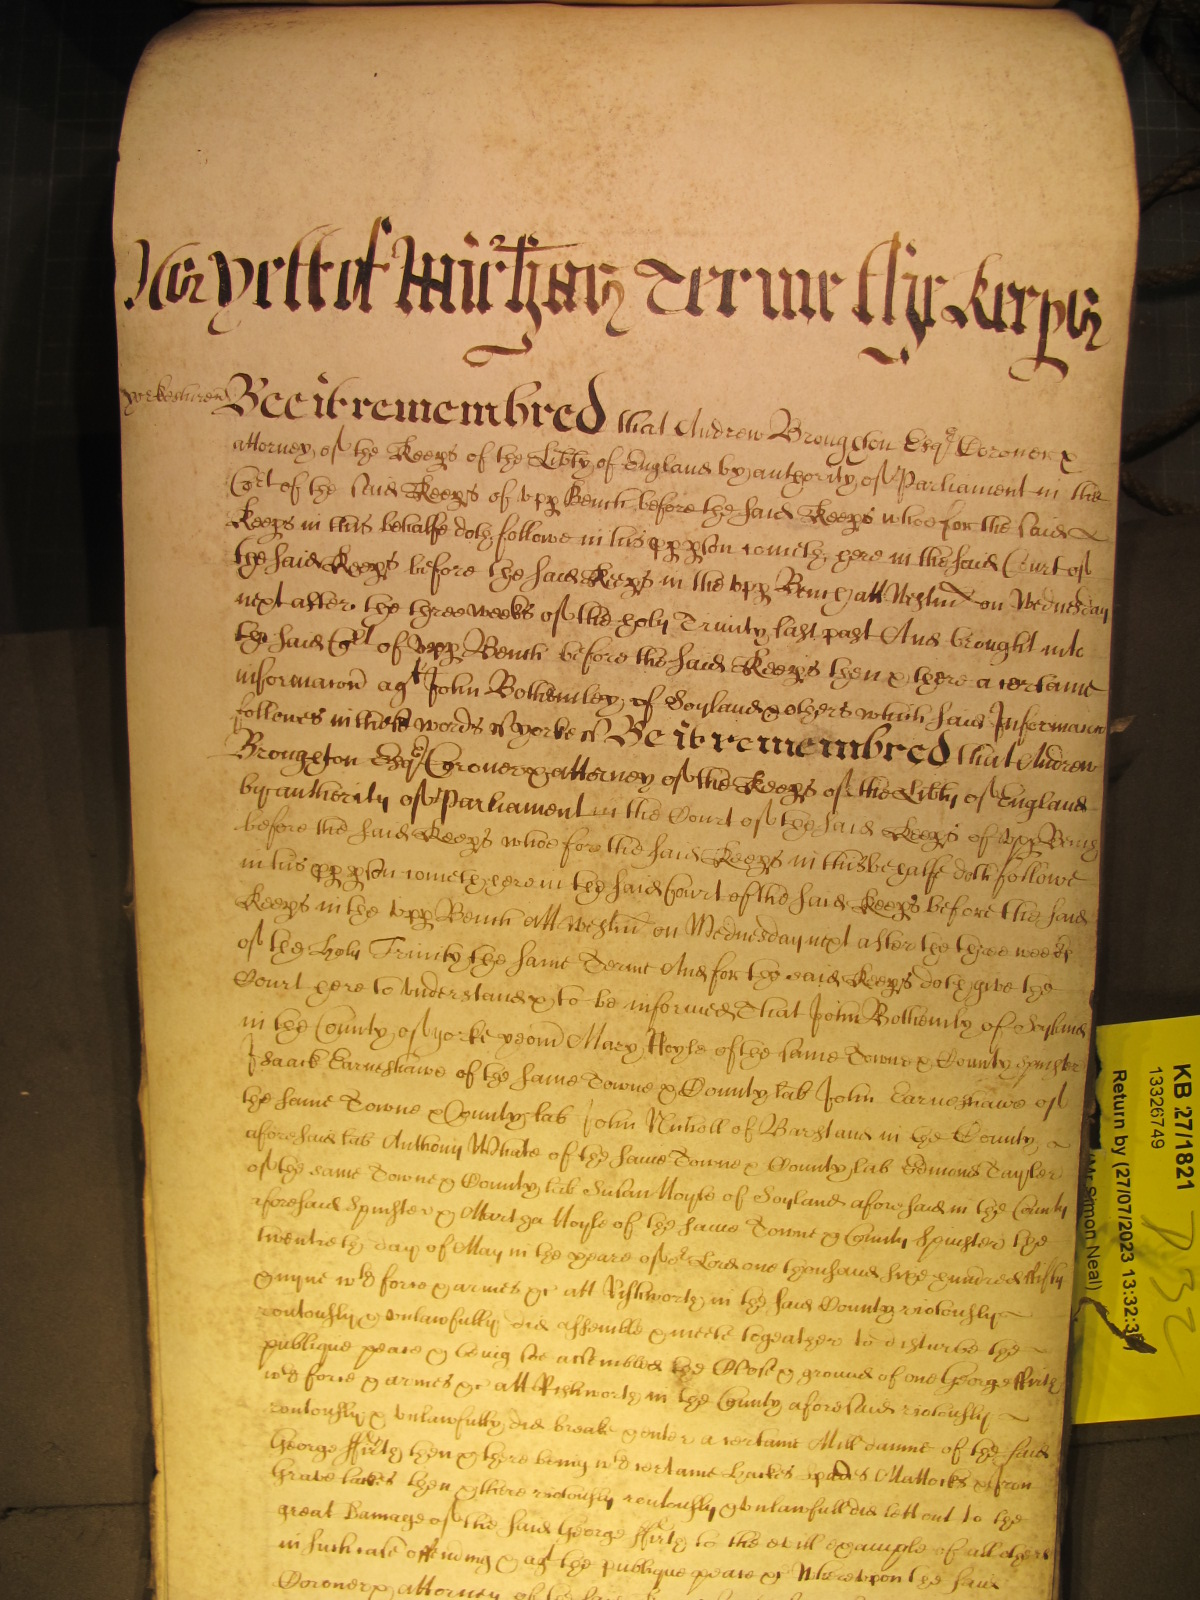 yet of Michas Terme The Keeps
Yorkeshire Bee it remembred that Andrew Broughton Esqr Coroner &
attorney of the Keeps of the Libty of England by authority of Parliament in the
Cort of the said Keeps of upp Bench before the said Keeps whoe for the said
Keeps in this behalfe doth followe in his pp pson cometh here in the said Court of
the said Keeps before the said Keeps in the upp Bench att Westm on Wednesday
next after the three weeks of the holy Trinity last past And brought into
the said Cort of upp Bench before the said Keeps then & there a certaine
informacon agt John Bothomley of Soyland & others which said Informacon
followes in these words ss yorke ss Be it remembred that Andrew
Broughton Esqr Coroner & attorney of the Keeps of the Libty of England
by authority of Parliament in the Court of the said Keeps of upp Bench
before the said Keeps whoe for the said Keeps in this behalfe doth followe
in his pp pson cometh here in the said Court of the said Keeps before the said
Keeps in the upp Bench att Westm on Wednesday next after the three weeks
of the Holy Trinity the same Terme And for the said Keeps doth give the
Court here to understand & to be informed That John Bothomly of Soyland
in the County of yorke yeom Mary Hoyle of the same Towne & County spinster
Isaack Earneshawe of the same Towne & County lab John Earneshawe of
the same Towne & County lab John Nicholl of Barsland in the County
aforesaid lab Anthony Whate of the same Towne & County lab Edmond Tayler
of the same Towne & County lab Susan Hoyle of Soyland aforesaid in the County
aforesaid Spinster & Martha Hoyle of the same Towne & County Spinster the
twentieth day of May in the yeare of or Lord one thousand sixe hundred fifty
& nyne wth force & armes &c att Rishworth in the said County riotously
routously & unlawfully did assemble & meete togeather to disturbe the
publique peace & being soe assembled the Close & ground of one George ffirth
wth force & armes &c att Rishworth in the County aforesaid riotously
routously & unlawfully did breake & enter a certaine Mill damme of the said
George ffirth then & there being wth certaine Hackes Spades Mattocks & Iron
then & there riotously routously & unlawfull did lett out to the
great Damage of the said George ffirth to the evill example of all others
in such case offending & agt the publique peace &c Whereupon the said
Coroner & attorney of the said
KB 27/1821
13326749
Return by (27/07/2023 13:32:3
Mr Simon Neal)
D32